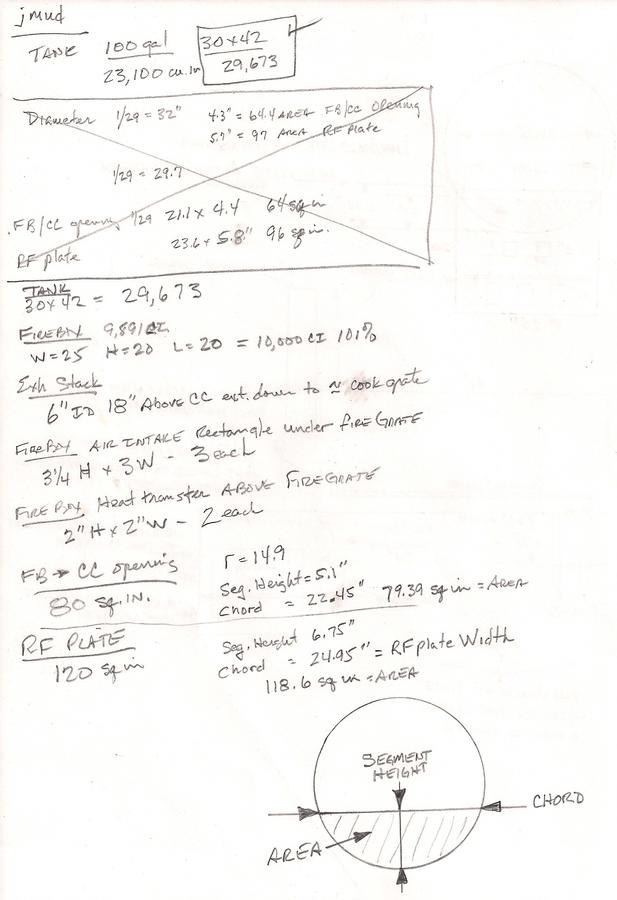 jmud
TANK 100 gal 30x42
23,100 cu.in 29,673
Diameter 1/29 = 32" 4.3" = 64.4 AREA FB/CC Opening
5.7" = 97 AREA RF Plate
1/29 = 29.7
FB/CC opening 1/29 21.1 x 4.4 64 sq in
23.6 x 5.8" 96 sq in.
RF plate
TANK
30x42 = 29,673
FIREBOX 9,891 CI.
W=25 H=20 L=20 = 10,000 CI 101%
Exh Stack
6" ID 18" Above CC ext. down to ≈ cook grate
FireBox AIR INTAKE Rectangle under fire GRATE
3 1/4 H x 3W - 3 each
FIRE BOX Heat transfer ABOVE FIREGRATE
2" H x 2" W - 2 each
FB → CC opening r = 14.9
80 SQ.IN. Seg. Height = 5.1"
Chord = 22.45" 79.39 sq in = AREA
RF PLATE Seg. Height 6.75"
120 sq in Chord = 24.95" = RF plate Width
118.6 sq in = AREA
SEGMENT
HEIGHT
CHORD
AREA